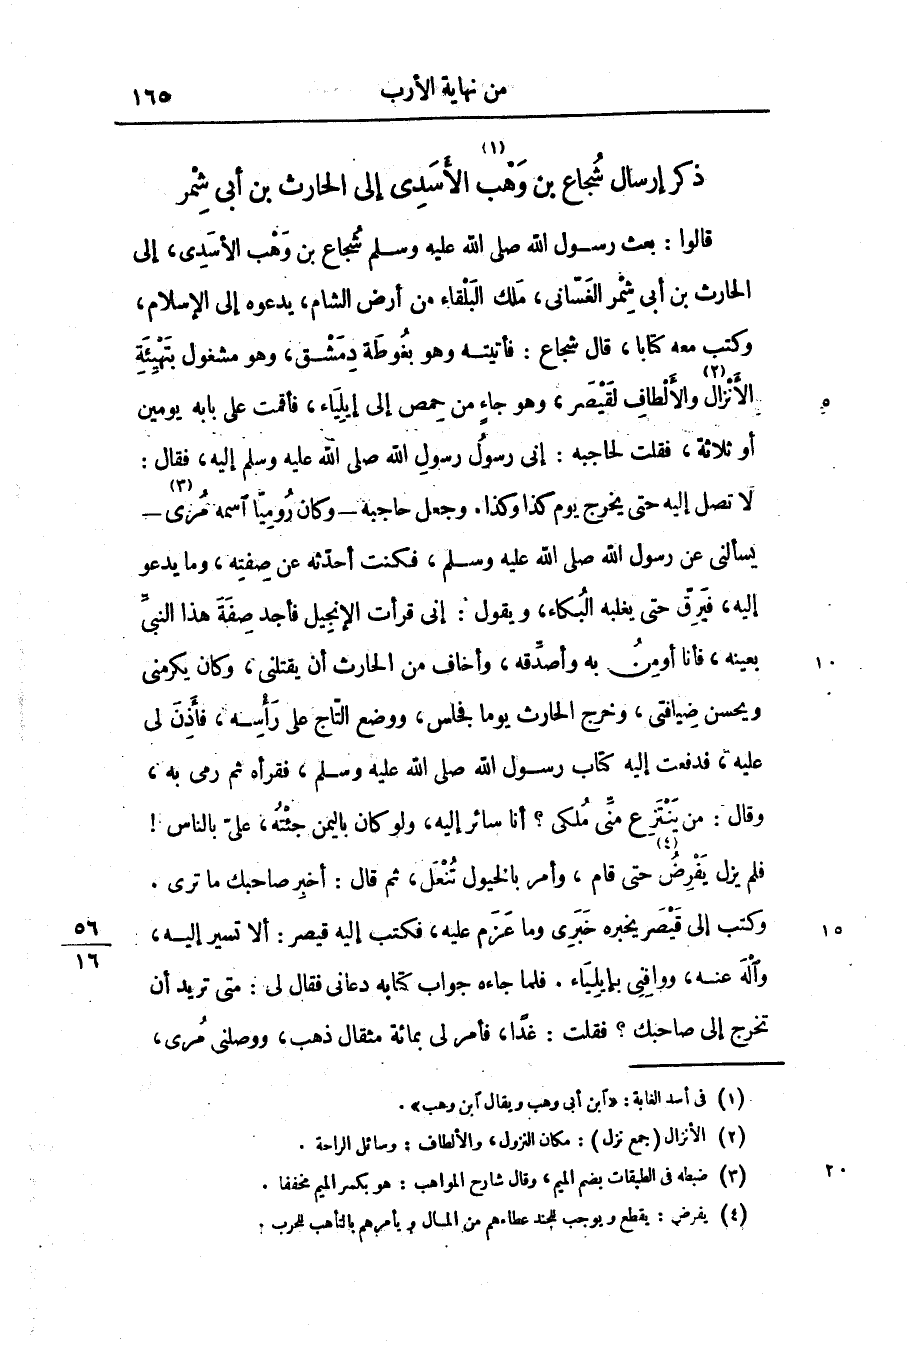 من نهاية الأرب ١٦٥
(١)
ذكر إرسال شُجاع بن وَهْب الأَسَدِى إلى الحارث بن أبى شِمْر
قالوا : بعث رسول الله صلى الله عليه وسلم شُجاع بن وَهْب الأسَدِى، إلى
الحارث بن أبى شِمْر الغَسّانى، مَلك البَلْقاء من أرض الشام، يدعوه إلى الإسلام،
وكتب معه كتابا، قال شجاع : فأتيته وهو بغُوطَة دِمَشْق، وهو مشغول بتَهْيِئَةِ
(٢)
الأَنْزال والأَلْطافِ لقَيْصَر، وهو جاءٍ من حِمص إلى إيلِيَاء، فأقمت على بابه يومين ٥
أو ثلاثة، فقلت لحاجبه : إنى رسولُ رسولِ الله صلى الله عليه وسلم إليه، فقال :
(٣)
لا تصل إليه حتى يخرج يوم كذا وكذا. وجعل حاجبه — وكان رُومِيًّا آسمه مُرى —
يسألنى عن رسول الله صلى الله عليه وسلم، فكنت أحدّثه عن صِفتِه، وما يدعو
إليه، فَيرِقّ حتى يغلبه البُكاء، ويقول : إنى قرأت الإنجيل فأجد صِفَةَ هذا النبىِّ
بعينه، فأنا أومِنُ به وأصدِّقه، وأخاف من الحارث أن يقتلنى، وكان يكرمنى ١٠
ويحسن ضِيافتى، وخرج الحارث يوما فجلس، ووضع التّاج على رَأْسِه، فأَذِنَ لى
عليه، فدفعت إليه كتاب رسول الله صلى الله عليه وسلم، فقرأه ثم رمى به،
وقال : من يَنْتَزِع منِّى مُلكى؟ أنا سائر إليه، ولو كان باليمن جئْتُه، علىّ بالناس!
(٤)
فلم يزل يَفْرِضُ حتى قام، وأمر بالخيول تُنْعَل، ثم قال : أخبِر صاحبك ما ترى.
وكتب إلى قَيْصَر يخبره خَبَرَى وما عَزَم عليه، فكتب إليه قيصر : ألا تسير إليه، ١٥
٥٦
١٦
وآلْهَ عنه، ووافِنِى بإيلِيَاء. فلما جاءه جواب كتابه دعانى فقال لى : متى تريد أن
تخرج إلى صاحبك؟ فقلت : غدًا، فأمر لى بمائة مثقال ذهب، ووصلنى مُرى،
(١) فى أسد الغابة : «آبن أبى وهب ويقال آبن وهب».
(٢) الأنزال (جمع نزل) : مكان النزول، والألطاف : وسائل الراحة.
(٣) ضبطه فى الطبقات بضم الميم، وقال شارح المواهب : هو بكسر الميم مخففا. ٢٠
(٤) يفرض : يقطع ويوجب للجند عطاءهم من المال ويأمرهم بالتأهب للحرب.